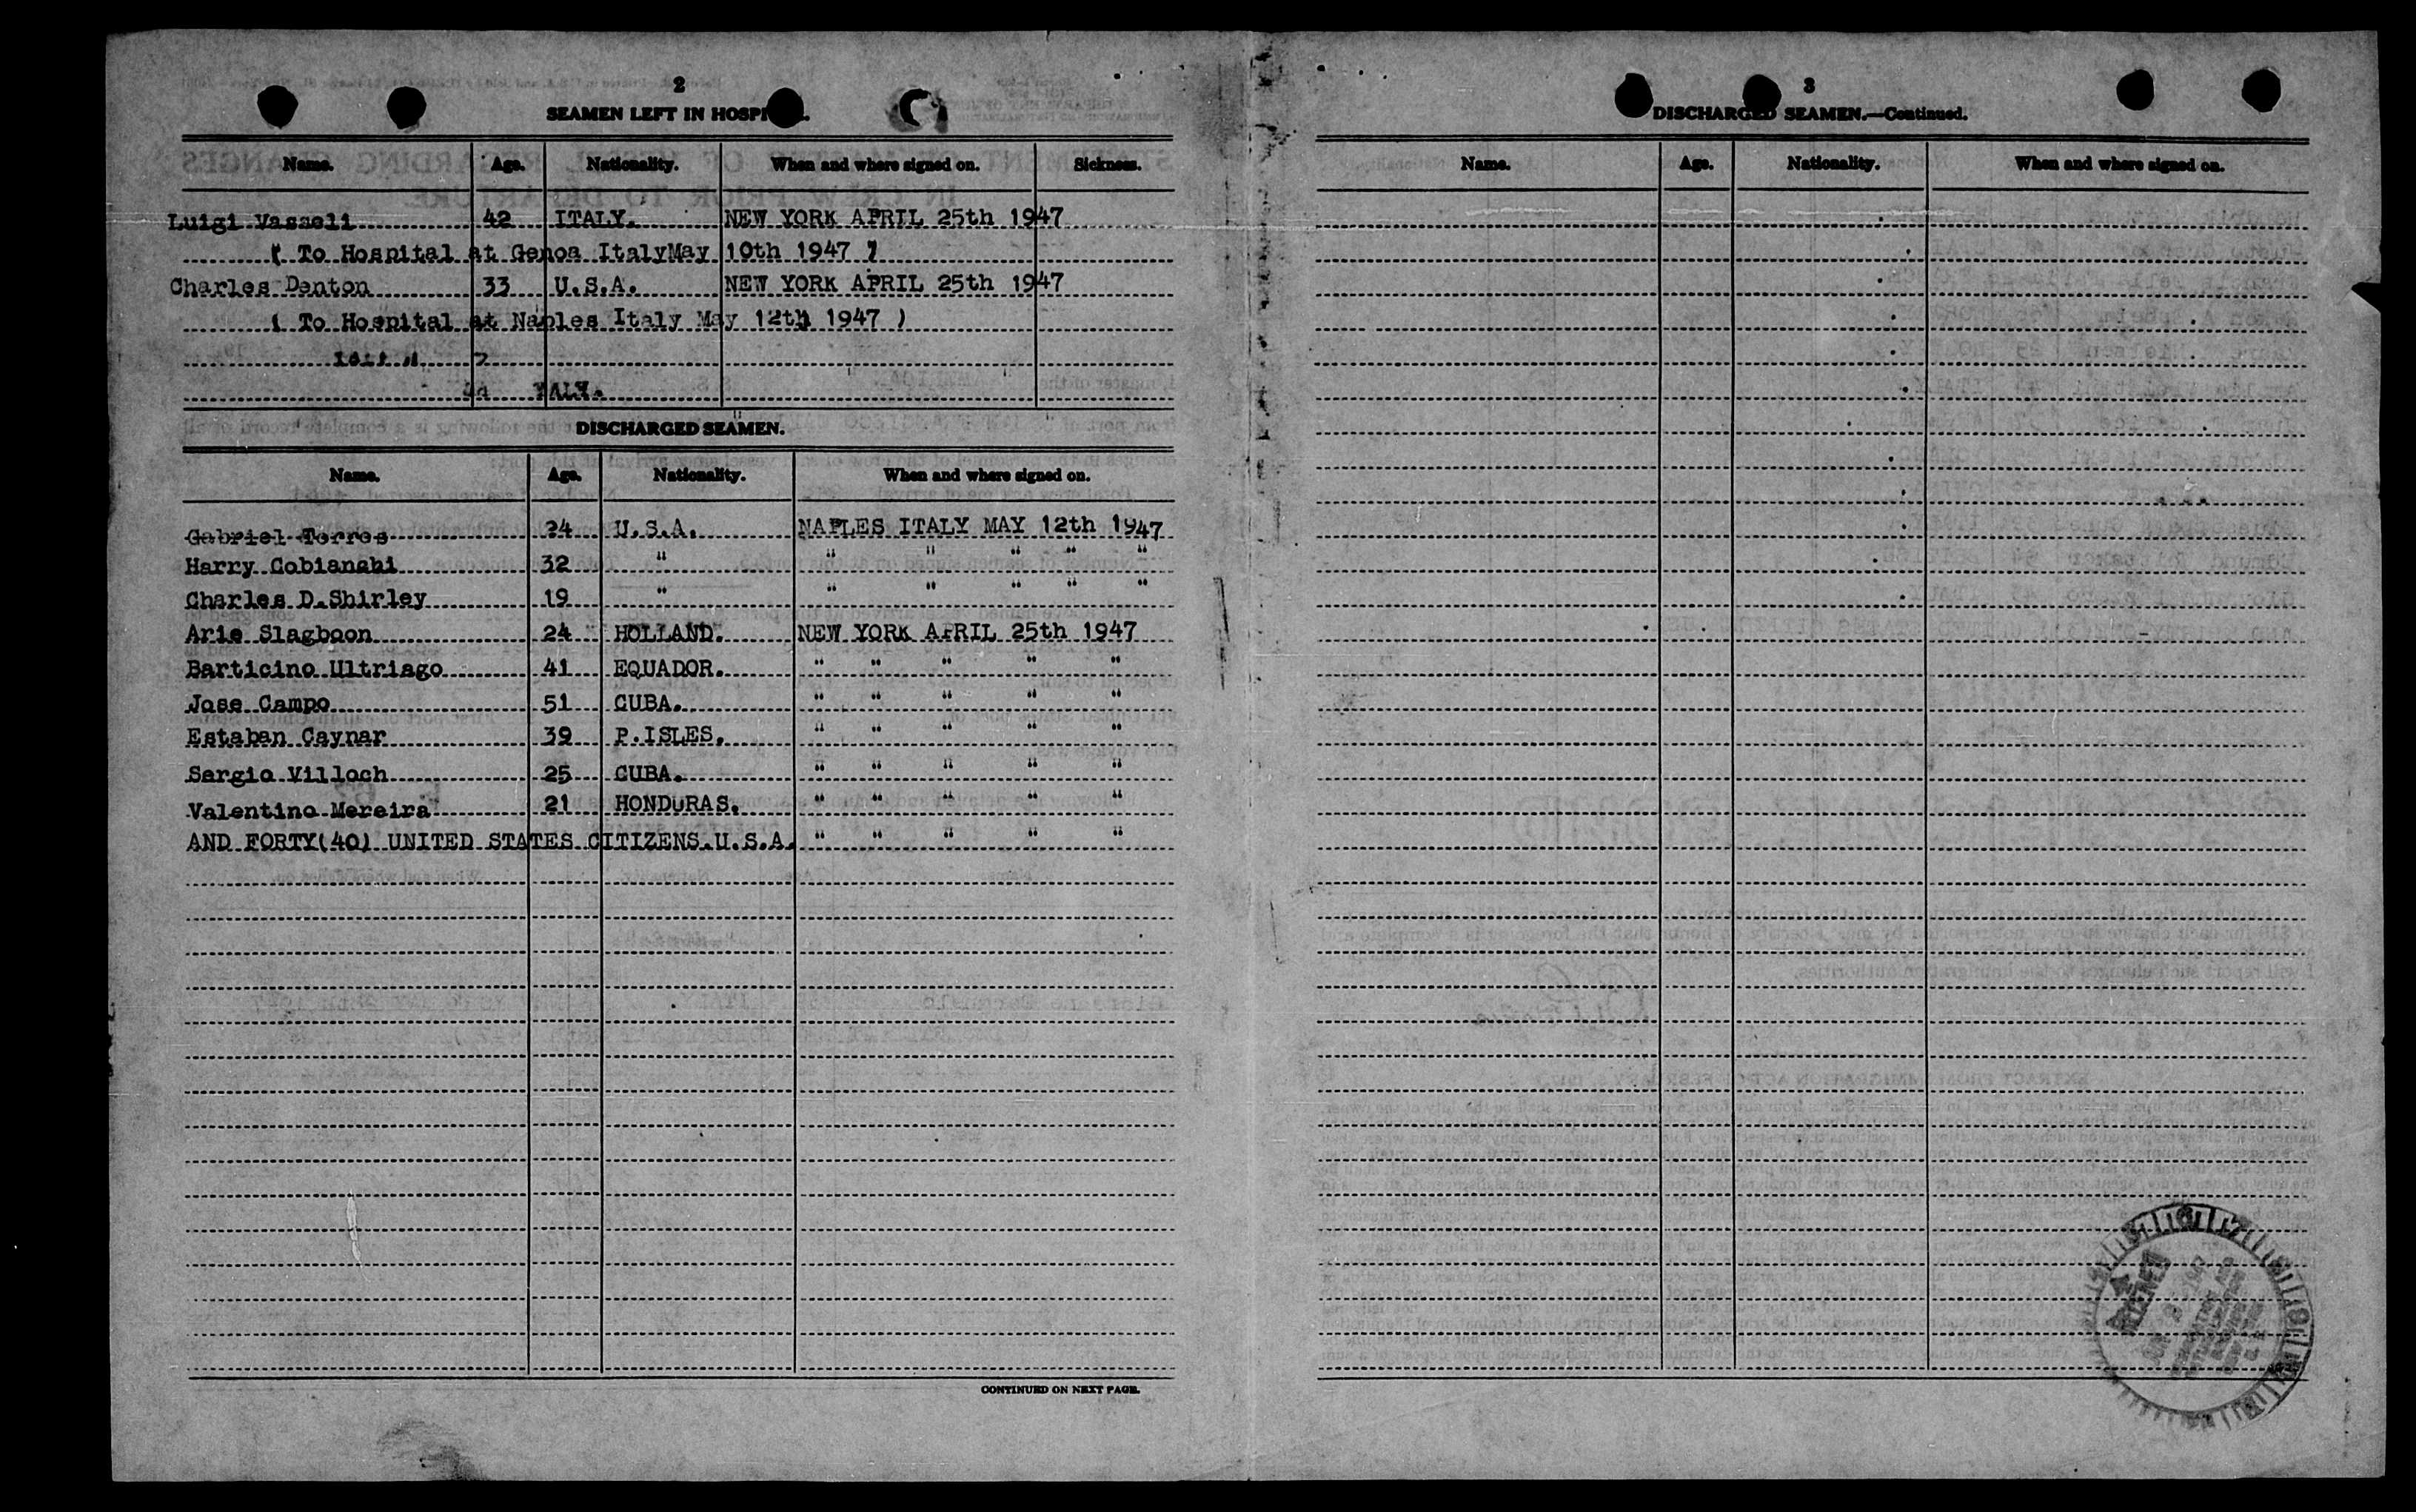 2
SEAMEN LEFT IN HOSPI .
Name. Age. Nationality. When and where signed on. Sickness.
Luigi Vasseli 42 ITALY. NEW YORK APRIL 25th 1947
( To Hospital at Genoa ItalyMay 10th 1947 )
Charles Denton 33 U.S.A. NEW YORK APRIL 25th 1947
( To Hospital at Naples Italy May 12th 1947 )
DISCHARGED SEAMEN.
Name. Age. Nationality. When and where signed on.
Gabriel Torres 24 U.S.A. NAPLES ITALY MAY 12th 1947
Harry Cobianchi 32 " " " " " "
Charles D.Shirley 19 " " " " " "
Arie Slagboon 24 HOLLAND. NEW YORK APRIL 25th 1947
Barticino Ultriago 41 EQUADOR. " " " " "
Jose Campo 51 CUBA. " " " " "
Estaban Caynar 39 P.ISLES. " " " " "
Sergio Villoch 25 CUBA. " " " " "
Valentino Mereira 21 HONDURAS. " " " " "
AND FORTY(40) UNITED STATES CITIZENS.U.S.A. " " " " "
CONTINUED ON NEXT PAGE.
3
DISCHARGED SEAMEN.—Continued.
Name. Age. Nationality. When and where signed on.